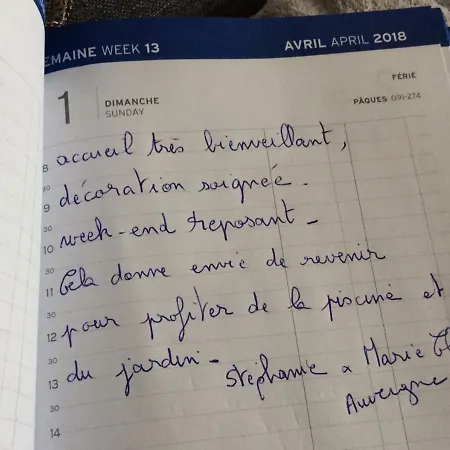 EMAINE WEEK 13
AVRIL APRIL 2018
1
DIMANCHE
SUNDAY
FÉRIÉ
PÂQUES 091-274
8 accueil très bienveillant,
30
décoration soignée.
9
30
10 week-end reposant -
30
11 Cela donne envie de revenir
30
12 pour profiter de la piscine et
30
13 du jardin - Stéphanie & Marie
30
Auvergne
14